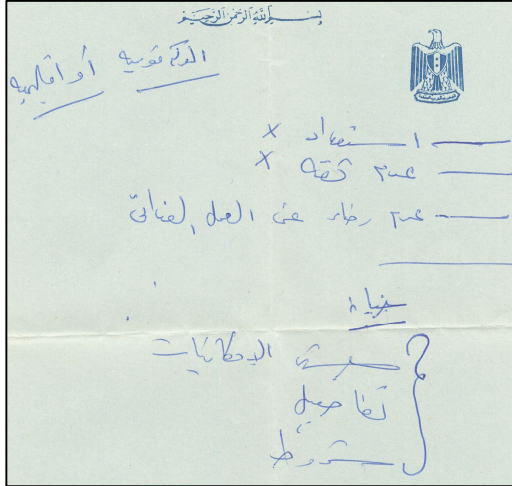 بسم الله الرحمن الرحيم
المعركة قومية أو اقليمية
— استعداد ×
— عدم ثقة ×
— عدم رضاء عن العمل الفدائى
الامكانيات
تفاصيل
شروط